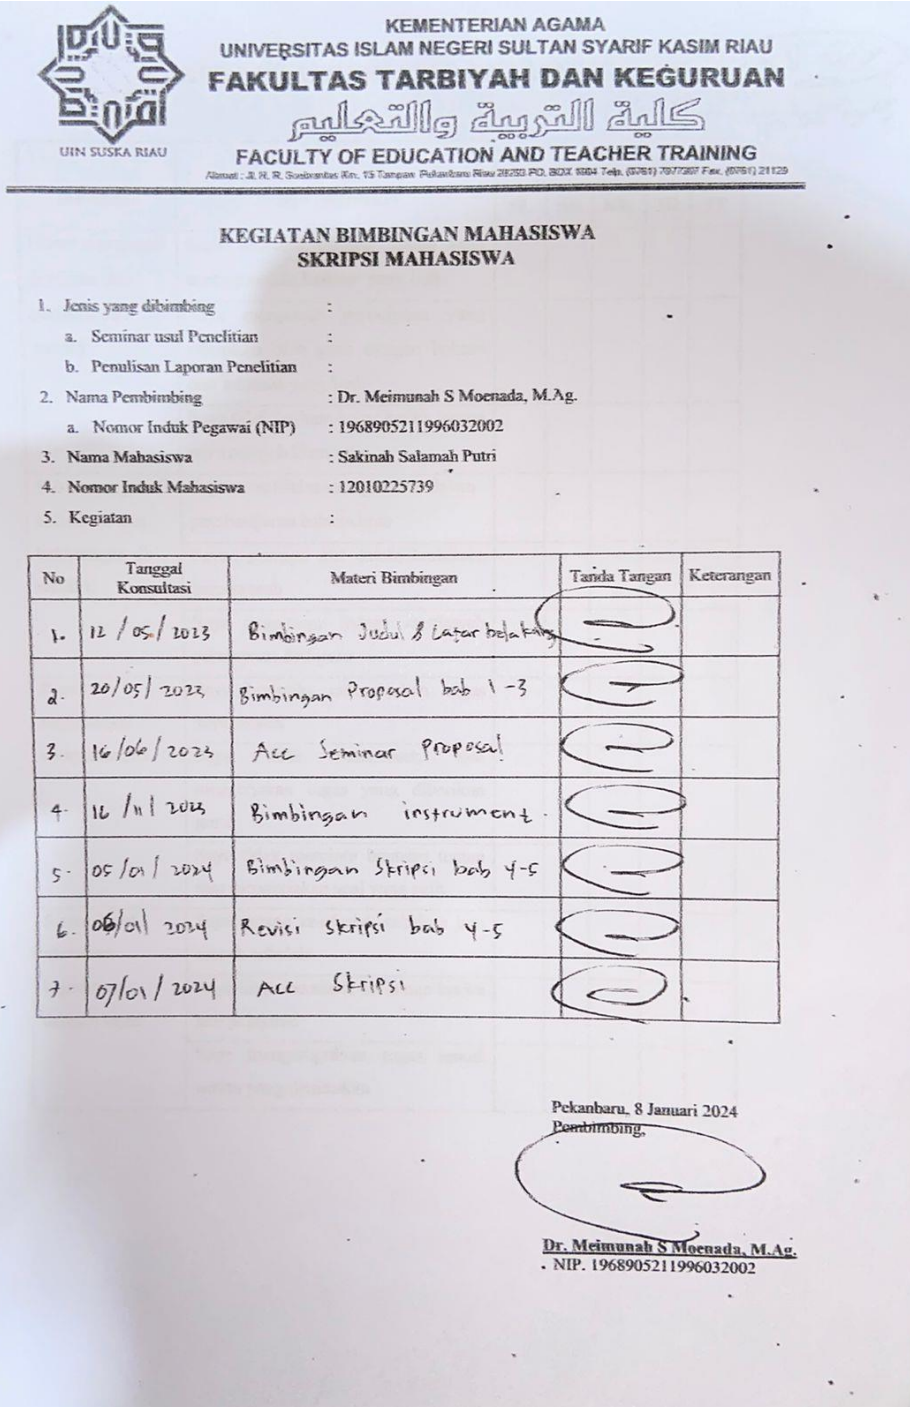 KEMENTERIAN AGAMA
UNIVERSITAS ISLAM NEGERI SULTAN SYARIF KASIM RIAU
FAKULTAS TARBIYAH DAN KEGURUAN
كلية التربية والتعليم
UIN SUSKA RIAU
FACULTY OF EDUCATION AND TEACHER TRAINING
Alamat : Jl. H. R. Soebrantas Km. 15 Tampan Pekanbaru Riau 28293 PO. BOX 1004 Telp. (0761) 7077307 Fax. (0761) 21129
KEGIATAN BIMBINGAN MAHASISWA
SKRIPSI MAHASISWA
1. Jenis yang dibimbing :
a. Seminar usul Penelitian :
b. Penulisan Laporan Penelitian :
2. Nama Pembimbing : Dr. Meimunah S Moenada, M.Ag.
a. Nomor Induk Pegawai (NIP) : 1968905211996032002
3. Nama Mahasiswa : Sakinah Salamah Putri
4. Nomor Induk Mahasiswa : 12010225739
5. Kegiatan :
No Tanggal Konsultasi Materi Bimbingan Tanda Tangan Keterangan
1. 12/05/2023 Bimbingan Judul & Latar belakang
2. 20/05/2023 Bimbingan Proposal bab 1-3
3. 16/06/2023 Acc Seminar Proposal
4. 16/11/2023 Bimbingan instrument.
5. 05/01/2024 Bimbingan Skripsi bab 4-5
6. 06/01/2024 Revisi skripsi bab 4-5
7. 07/01/2024 Acc Skripsi
Pekanbaru, 8 Januari 2024
Pembimbing,
Dr. Meimunah S Moenada, M.Ag.
NIP. 1968905211996032002